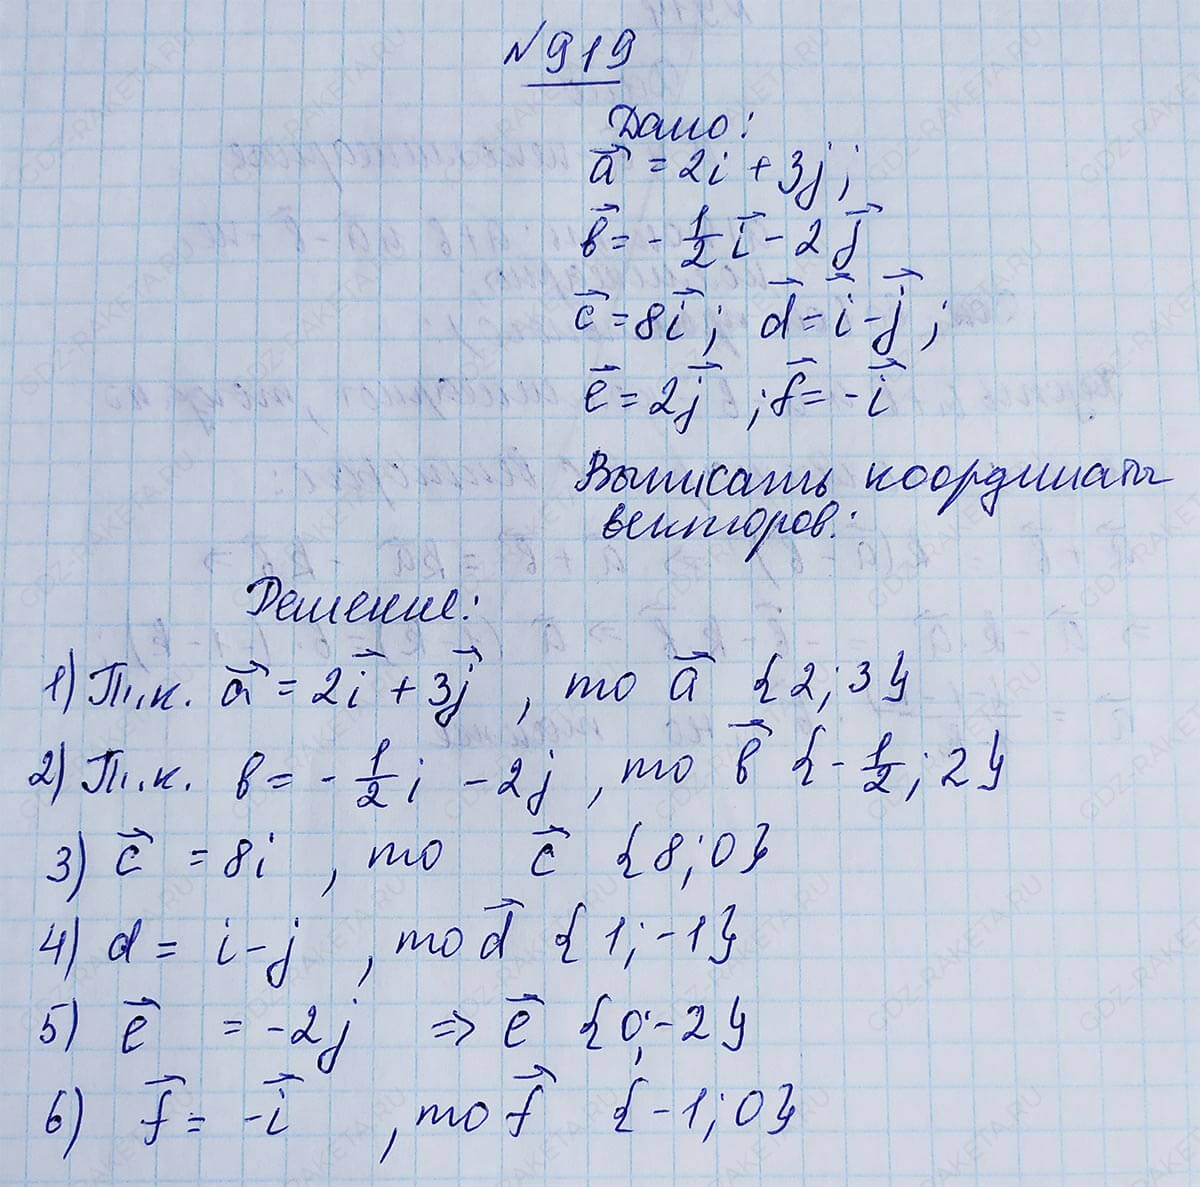 №919
Дано:
a⃗ = 2i + 3j;
b⃗ = -1/2 i⃗ - 2j⃗
c⃗ = 8i⃗; d⃗ = i⃗ - j⃗;
e⃗ = 2j⃗; f⃗ = -i⃗
Выписать координаты
векторов:
Решение:
1) Т.к. a⃗ = 2i⃗ + 3j⃗, то a⃗ {2; 3}
2) Т.к. b = -1/2 i - 2j, то b⃗ {-1/2; 2}
3) c⃗ = 8i, то c⃗ {8; 0}
4) d = i - j, то d⃗ {1; -1}
5) e⃗ = -2j => e⃗ {0; -2}
6) f⃗ = -i⃗, то f⃗ {-1; 0}
GDZ-RAKETA.RU